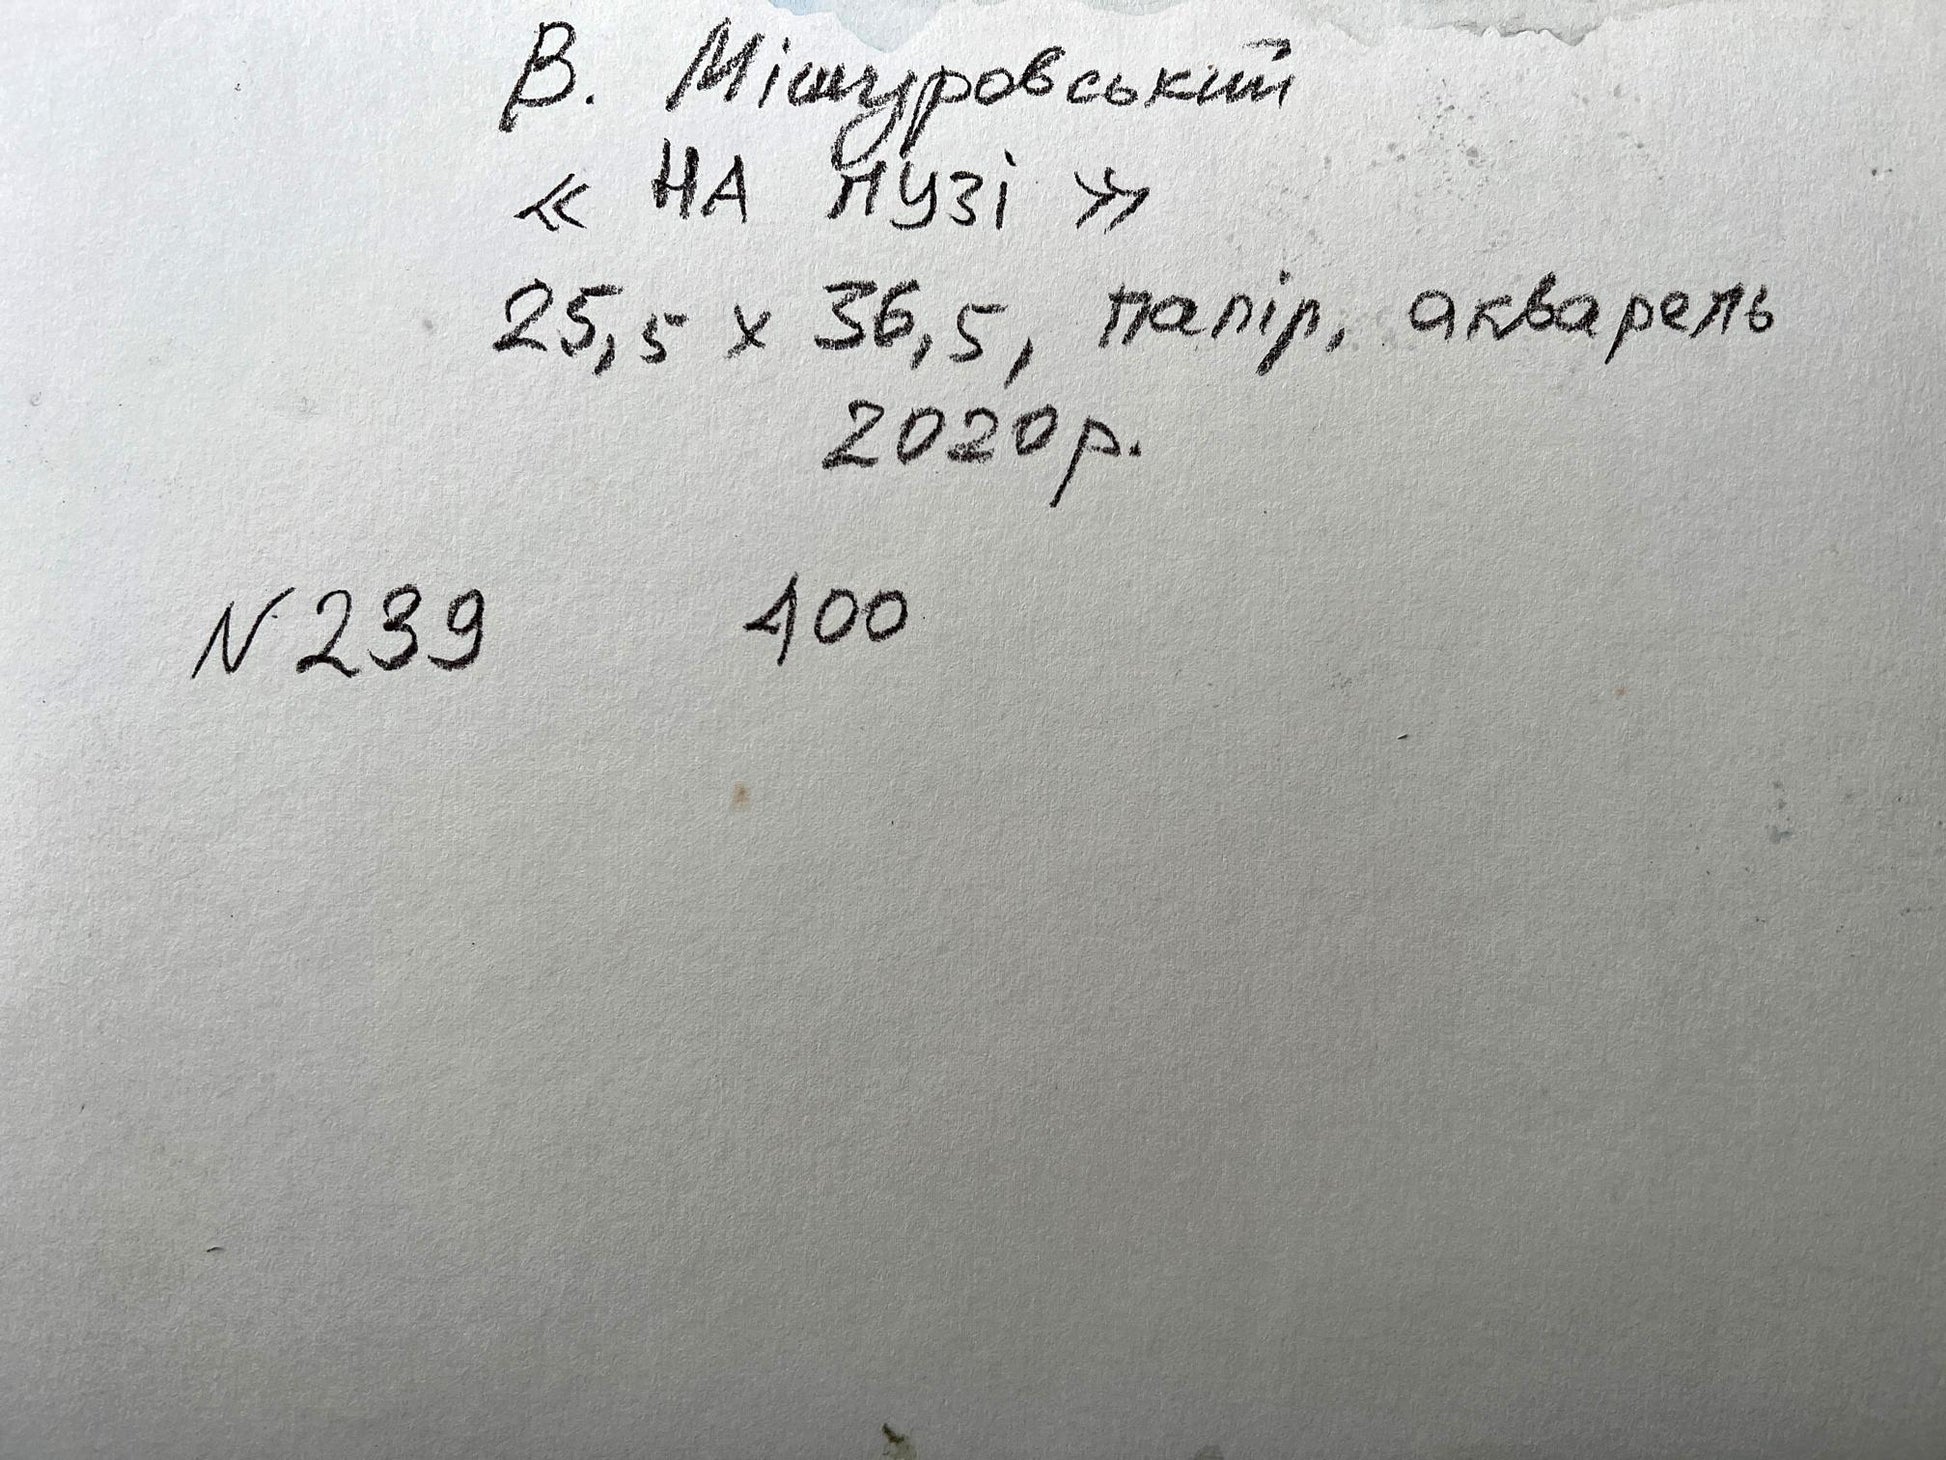 В. Мішуровський
« НА ЛУЗІ »
25,5 х 36,5, папір, акварель
2020р.
N 239 400